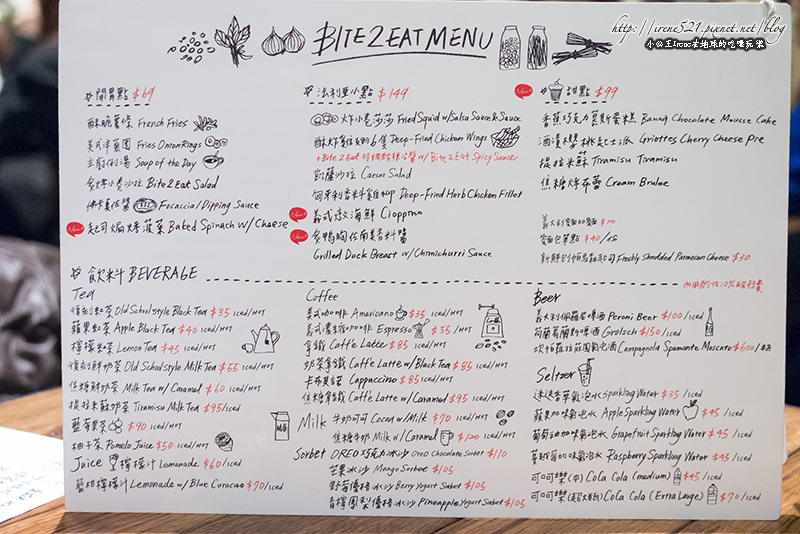 http://irene521.pixnet.net/blog
小公主Irene去地球的吃喝玩樂
BITE2EAT MENU
開胃點 $69
酥脆薯條 French Fries
美式洋蔥圈 Fries Onion Rings
主廚例湯 Soup of the Day
炙烤小卷沙拉 Bite2Eat Salad
佛卡夏佐醬 Focaccia/Dipping Sauce
New 起司焗烤菠菜 Baked Spinach w/ Cheese
法利亞小點 $149
炸小卷莎莎 Fried Squid w/Salsa Sauce & Sauce
酥炸雞翅 6隻 Deep-Fried Chicken Wings
w/ Bite2Eat Spicy Sauce
凱薩沙拉 Caesar Salad
匈牙利香料雞柳 Deep-Fried Herb Chicken Fillet
New 義式燉海鮮 Cioppino
New 炙鴨胸佐南美香料醬
Grilled Duck Breast w/ Chimichurri Sauce
New 甜點 $99
香蕉巧克力慕斯蛋糕 Banna Chocolate Mousse Cake
酒漬櫻桃起士派 Griottes Cherry Cheese Pie
提拉米蘇 Tiramisu Tiramisu
焦糖烤布蕾 Cream Brulee
義大利麵加麵 $20
麵包單點 $40/4片
新鮮刨帕瑪森起司 Freshly Shredded Parmesan Cheese $30
內用酌收10%服務費
飲料 BEVERAGE
Tea
復刻紅茶 Old School style Black Tea $35 iced/HOT
蘋果紅茶 Apple Black Tea $40 iced/HOT
檸檬紅茶 Lemon Tea $45 iced/HOT
復刻鮮奶茶 Old School style Milk Tea $55 iced/HOT
焦糖鮮奶茶 Milk Tea w/ Caramel $60 iced/HOT
提拉米蘇奶茶 Tiramisu Milk Tea $95/iced
藍莓果茶 $90/HOT
柚子茶 Pomelo Juice $50 iced/HOT
Juice 檸檬汁 Lemonade $60/iced
藍柑檸檬汁 Lemonade w/ Blue Curacao $70/iced
Coffee
美式咖啡 Americano $35 iced/HOT
義式濃縮咖啡 Espresso $55 /HOT
拿鐵 Caffè Latte $85 iced/HOT
奶茶拿鐵 Caffè Latte w/Black Tea $85 iced/HOT
卡布其諾 Cappuccino $85 iced/HOT
焦糖拿鐵 Caffè Latte w/Caramel $95 iced/HOT
Milk 牛奶可可 Cocoa w/Milk $70 iced/HOT
焦糖牛奶 Milk w/Caramel $120 iced/HOT
Sorbet OREO巧克力冰沙 Oreo Chocolate Sorbet $110
芒果冰沙 Mango Sorbet $105
野莓優格冰沙 Berry Yogurt Sorbet $105
青檸鳳梨優格冰沙 Pineapple Yogurt Sorbet $105
Beer
義大利佩羅尼啤酒 Peroni Beer $100/iced
荷蘭葛蘭斯啤酒 Grolsch $150/iced
坎帕羅拉莊園氣泡酒 Campagnola Spumante Moscato $600/瓶
Seltzer
迷迭香草氣泡水 Sparkling Water $35/iced
蘋果加味氣泡水 Apple Sparkling Water $45/iced
葡萄柚加味氣泡水 Grapefruit Sparkling Water $45/iced
蔓越莓加味氣泡水 Raspberry Sparkling Water $45/iced
可口可樂(中) Coca Cola (medium) $45/iced
可口可樂(超大瓶) Coca Cola (Extra Large) $70/iced